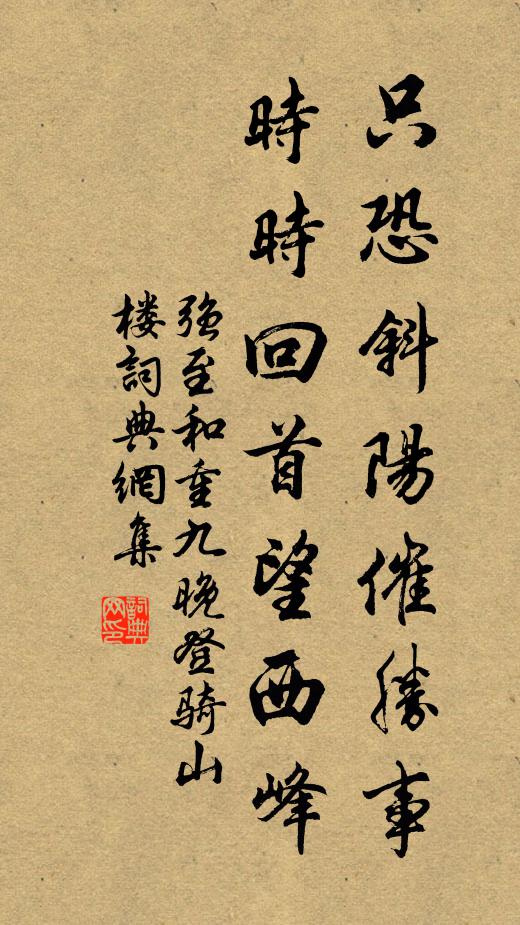 只恐斜陽催勝事
時時回首望西峰
强至和重九晚登骑山
楼詞典網集
詞典网印